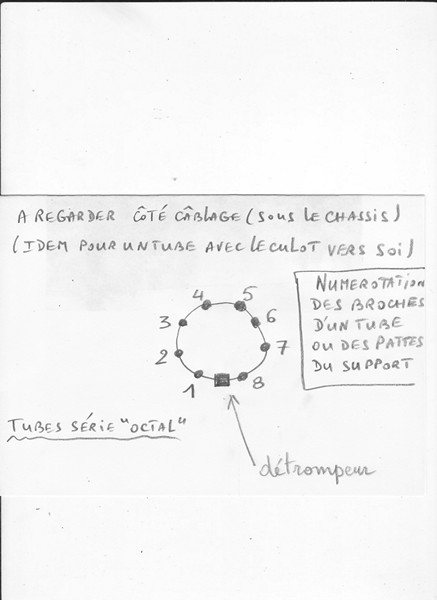 A REGARDER CÔTÉ CÂBLAGE (SOUS LE CHASSIS)
(IDEM POUR UN TUBE AVEC LE CULOT VERS SOI)
NUMEROTATION
DES BROCHES
D'UN TUBE
OU DES PATTES
DU SUPPORT
4 5
3 6
2 7
1 8
TUBES SÉRIE "OCTAL"
détrompeur